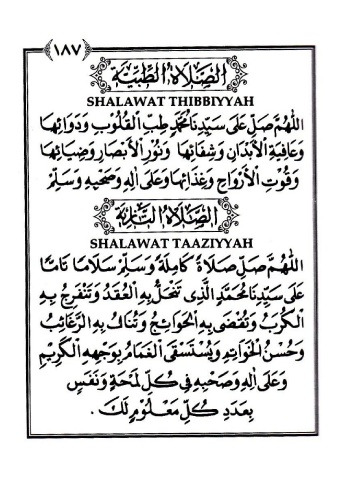 ١٨٧
الصَّلَاةُ الطِّبِّيَّة
SHALAWAT THIBBIYYAH
اَللّٰهُمَّ صَلِّ عَلَى سَيِّدِنَا مُحَمَّدٍ طِبِّ الْقُلُوْبِ وَدَوَائِهَا
وَعَافِيَةِ الْأَبْدَانِ وَشِفَائِهَا وَنُوْرِ الْأَبْصَارِ وَضِيَائِهَا
وَقُوْتِ الْأَرْوَاحِ وَغِذَائِهَا وَعَلَى اٰلِهِ وَصَحْبِهِ وَسَلِّمْ
الصَّلَاةُ التَّازِيَة
SHALAWAT TAAZIYYAH
اَللّٰهُمَّ صَلِّ صَلَاةً كَامِلَةً وَسَلِّمْ سَلَامًا تَامًّا
عَلَى سَيِّدِنَا مُحَمَّدٍ الَّذِى تَنْحَلُّ بِهِ الْعُقَدُ وَتَنْفَرِجُ بِهِ
الْكُرَبُ وَتُقْضَى بِهِ الْحَوَائِجُ وَتُنَالُ بِهِ الرَّغَائِبُ
وَحُسْنُ الْخَوَاتِمِ وَيُسْتَسْقَى الْغَمَامُ بِوَجْهِهِ الْكَرِيْمِ
وَعَلَى اٰلِهِ وَصَحْبِهِ فِى كُلِّ لَمْحَةٍ وَنَفَسٍ
بِعَدَدِ كُلِّ مَعْلُوْمٍ لَكَ .